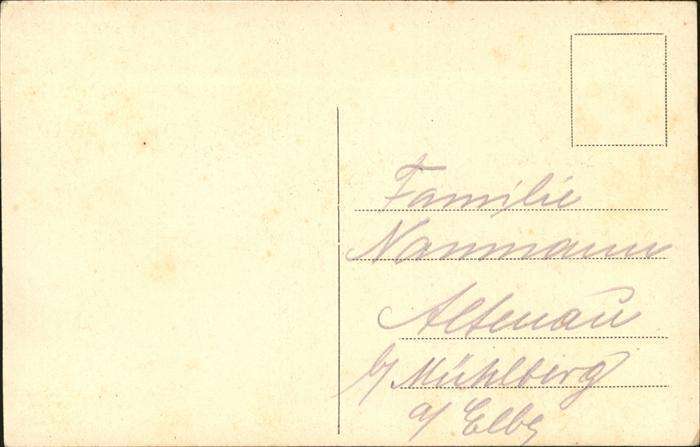 Familie
Naumann
Altenau
b/ Mühlberg
a/ Elbe